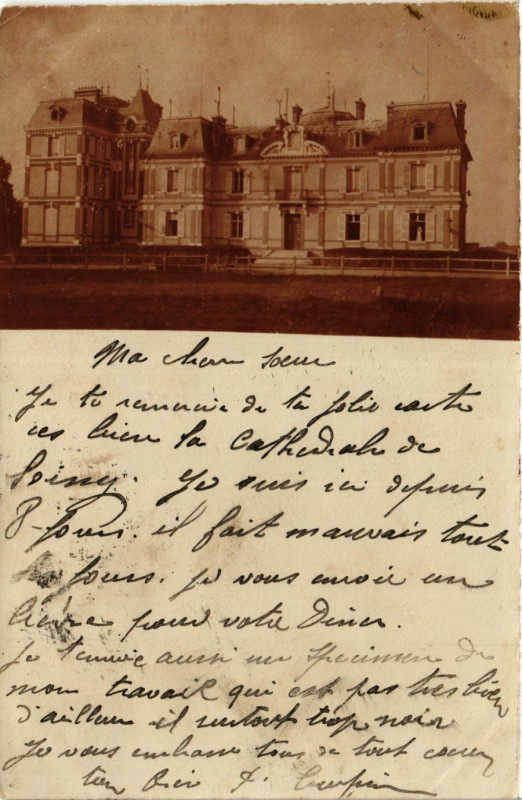 Ma chere soeur
Je te remercie de ta jolie carte
ces bien la Cathedrale de
. Je suis ici depuis
8 jours. il fait mauvais tout
jours. je vous envoie un
lièvre pour votre Diner.
Je t'envoie aussi un specimen de
mon travail qui est pas tres bien
d'ailleur il surtout trop noir
Je vous embrasse tous de tout coeur
ton